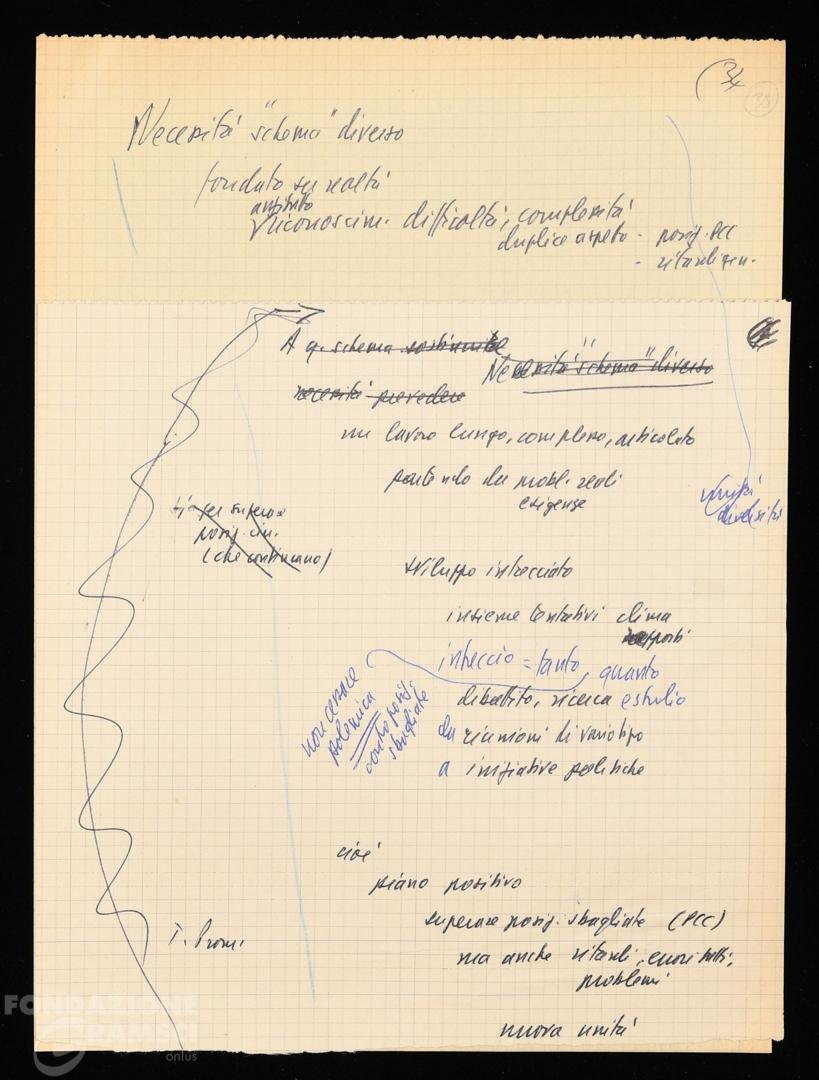 34
33
Necessità "schema" diverso
fondato su realtà
anzitutto
riconoscim. difficoltà, complessità
duplice aspetto - posiz. PCC
- ritardi gen.
A q. schema sostituirle
Necessità "schema" diverso
necessità prevedere
un lavoro lungo, complesso, articolato
partendo da probl. reali
esigenze
unità
diversità
per superare
posiz. cin.
(che continuano)
sviluppo intrecciato
insieme tentativi clima
rapporti
intreccio = tanto quanto
dibattito, ricerca e studio
non cessare
polemica
contro posiz.
sbagliate
da riunioni di vario tipo
a iniziative politiche
cioè
piano positivo
superare posiz. sbagliate (PCC)
ma anche ritardi, errori tutti,
problemi
T. Prom.
nuova unità
FONDAZIONE
GRAMSCI
onlus